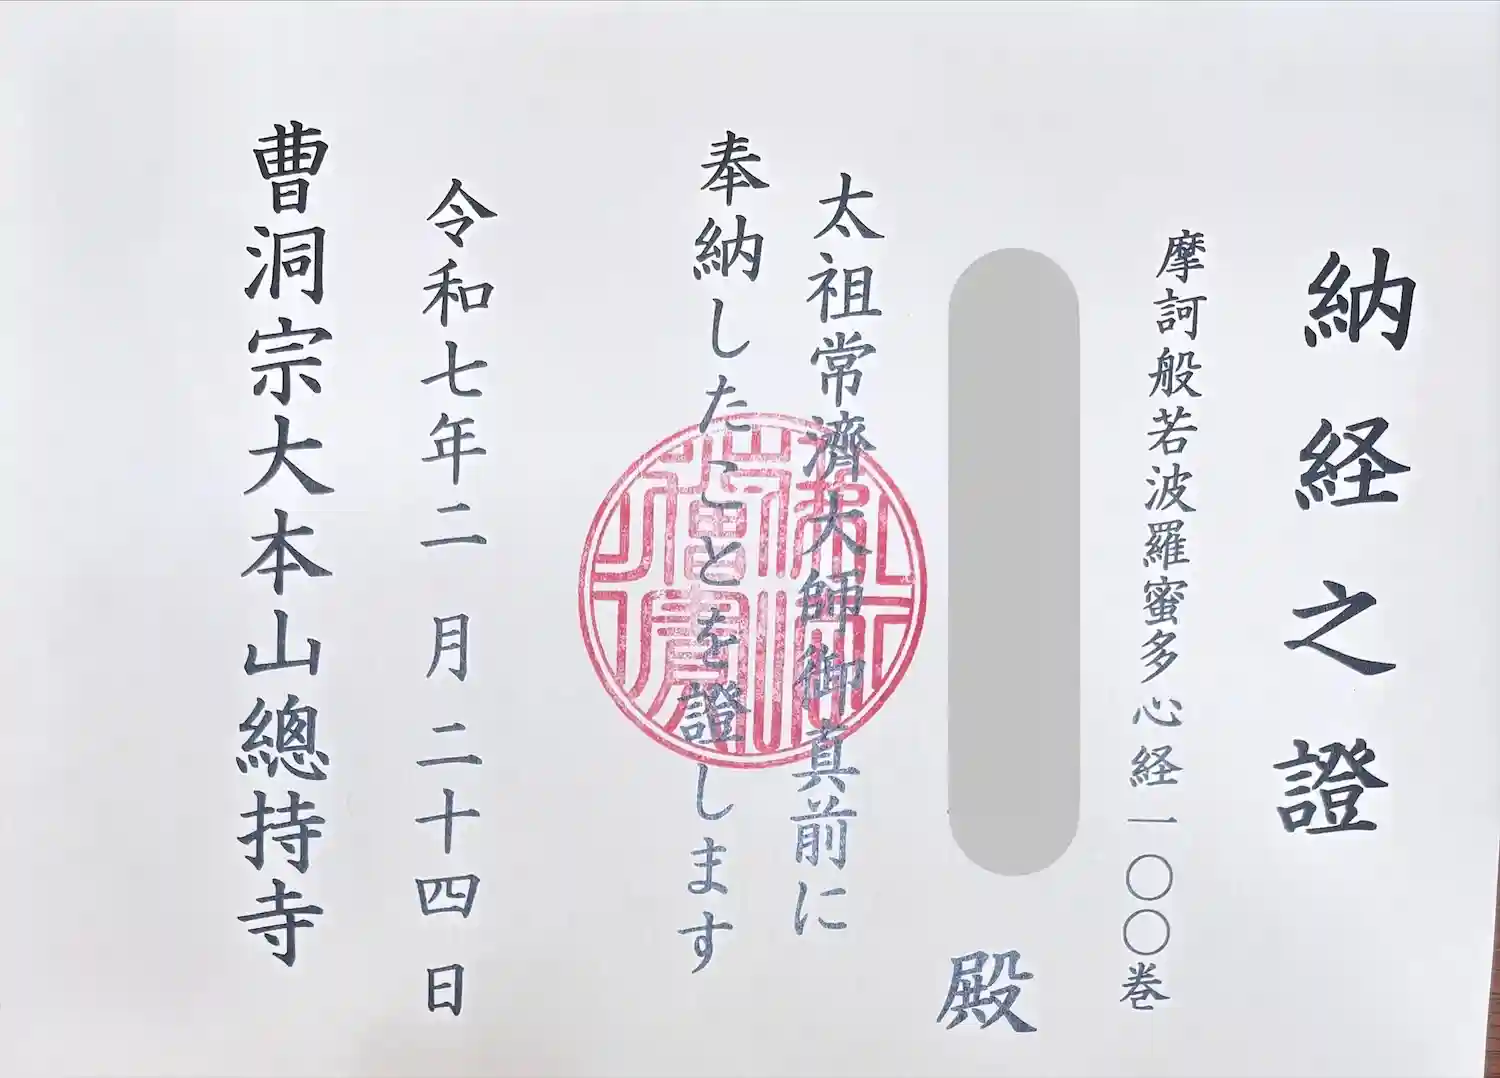 納経之證
摩訶般若波羅蜜多心経一〇〇巻
殿
太祖常濟大師御真前に
奉納したことを證します
令和七年二月二十四日
曹洞宗大本山總持寺